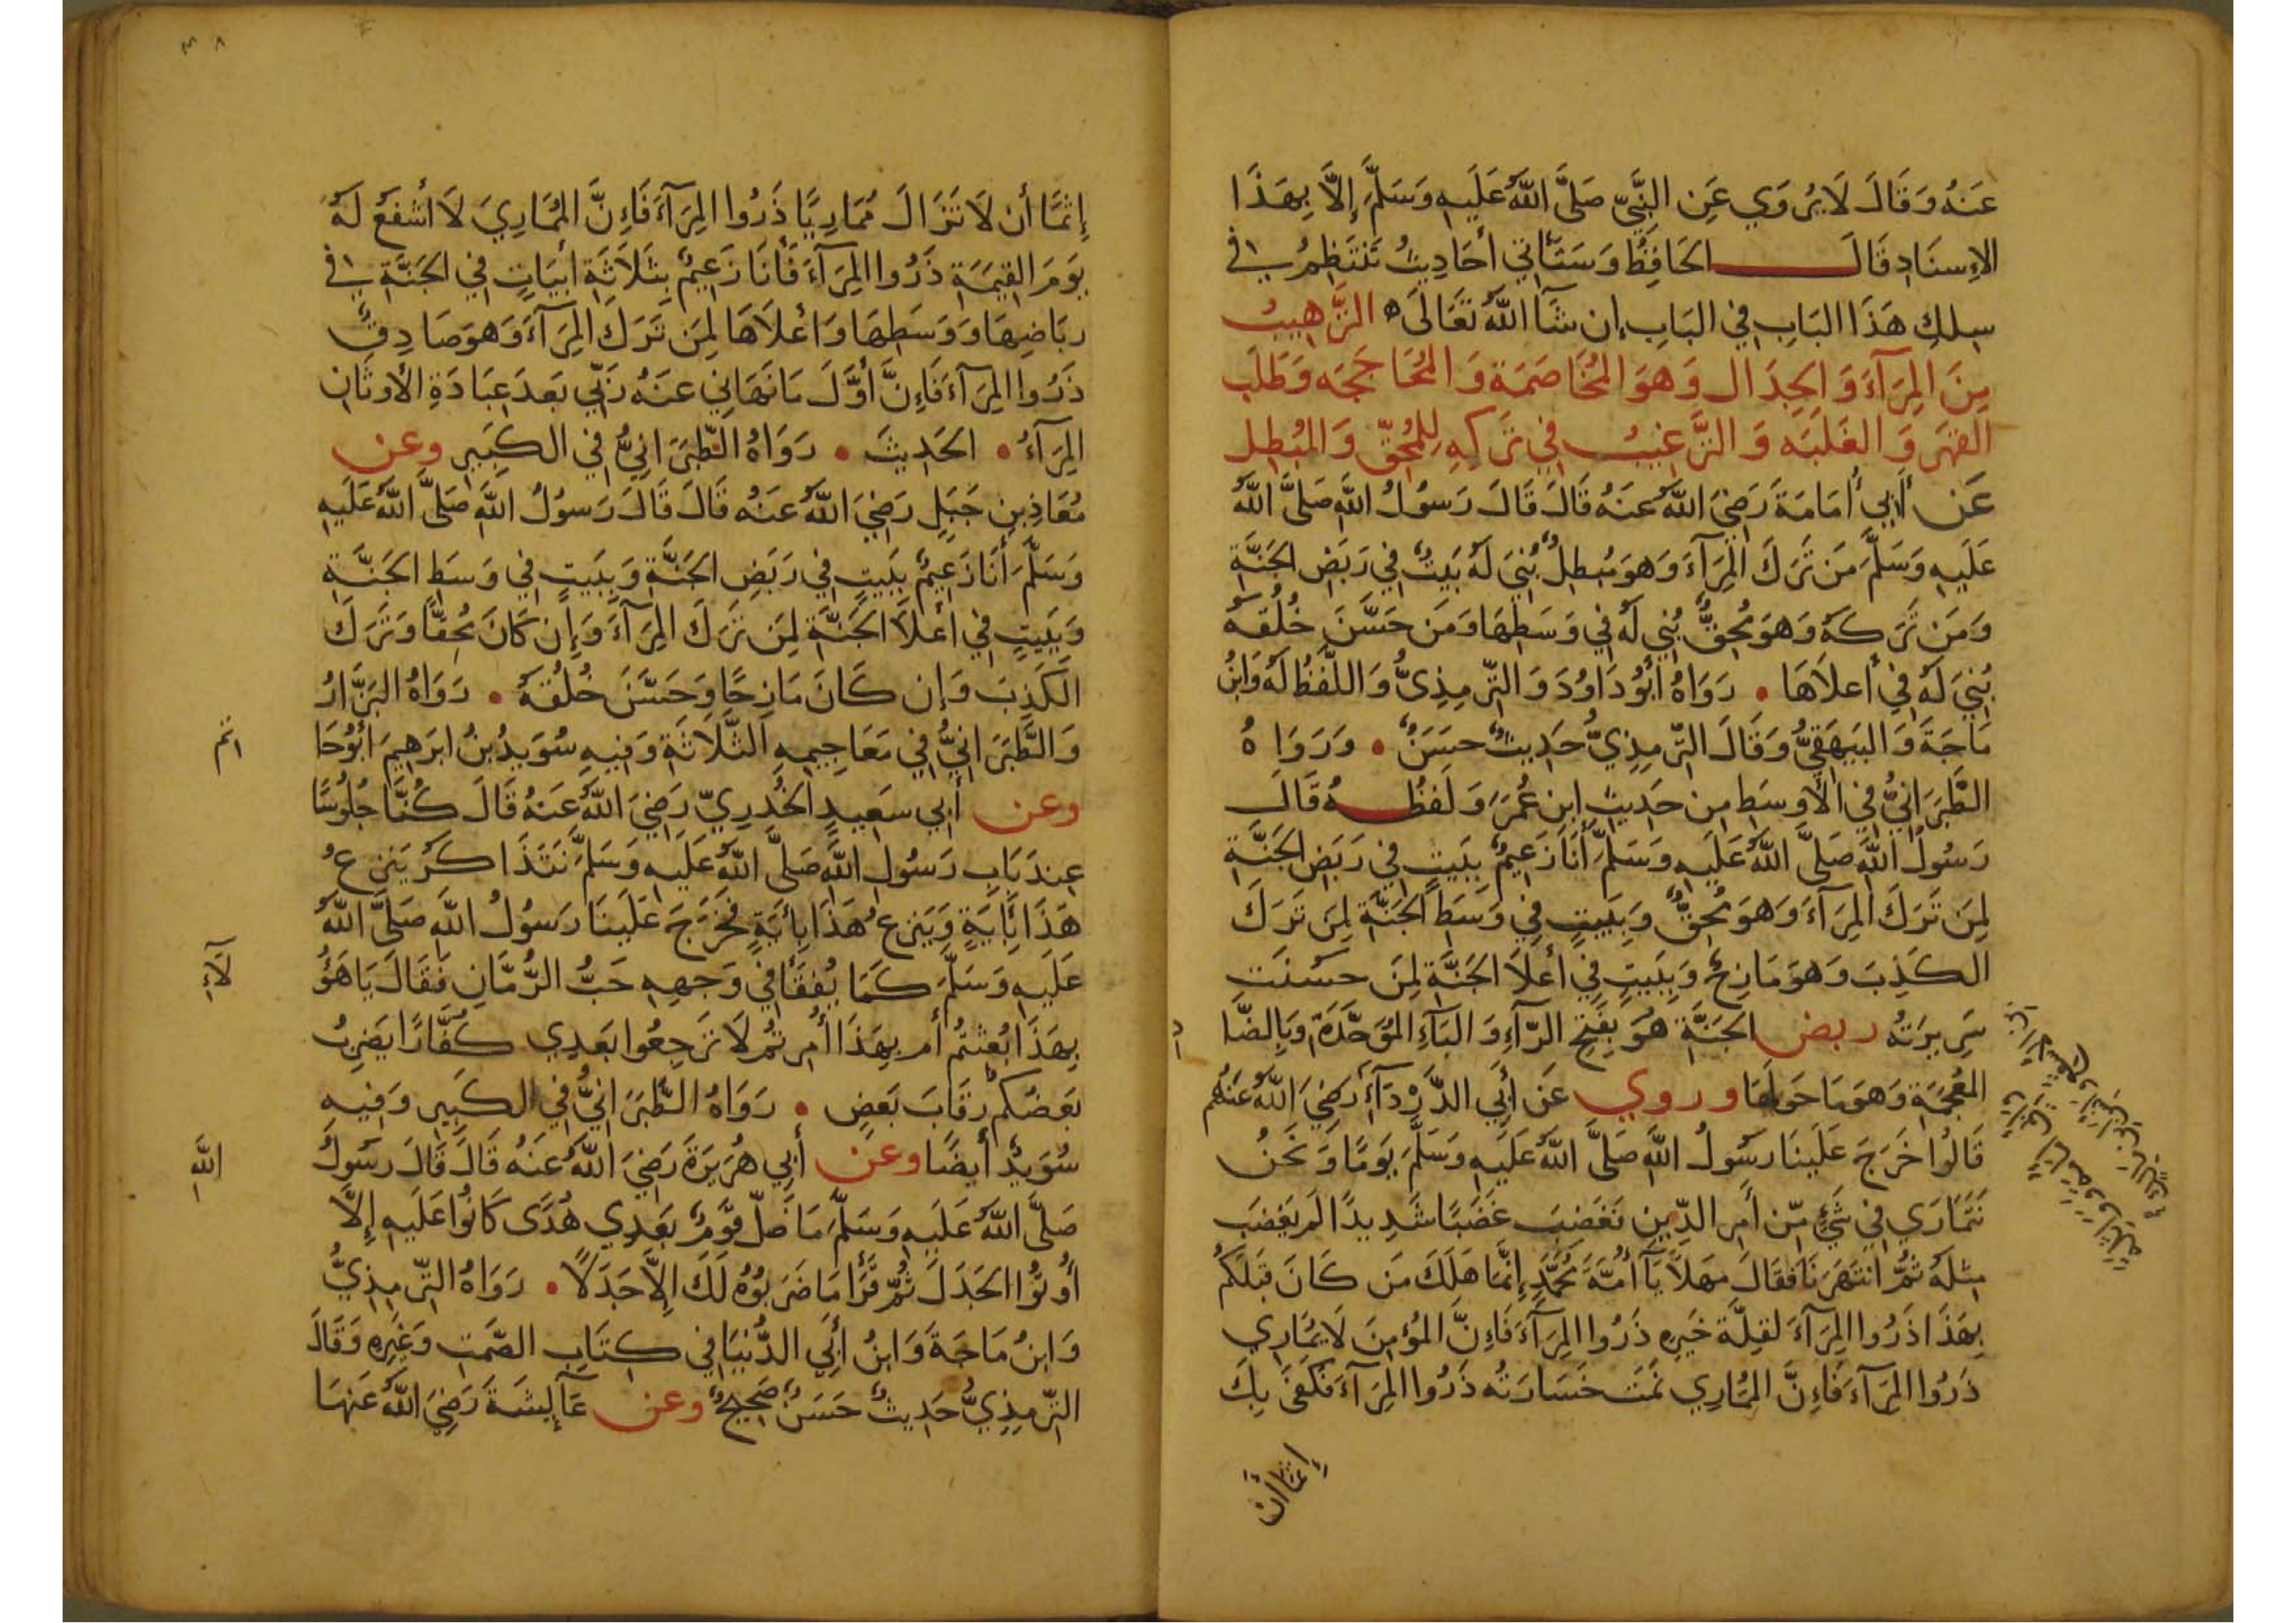 عَنهُ وَقَالَ لَا يُروَي عَنِ النَّبِيّ صَلَّى اللّٰهُ عَلَيهِ وَسَلَّمَ إِلَّا بِهَذَا
الإِسنَادِ قَالَ الحَافِظُ وَسَتَأتي أَحَادِيثُ تَنتَظِمُ في
سِلكِ هَذَا البَابِ في البَابِ إن شَآ اللّٰهُ تَعَالَى ه الترَّهِيبُ
مِنَ المِرَآءِ وَالجِدَال وَهوَ المُخَاصَمَة وَالمُحَاجَجَه وَطَلَب
القَهَر وَالغَلَبَه وَالتَّرَّغيبُ في تَركِهِ لِلمُحِقّ وَالمُبطِل
عَن أَبي أُمَامَةَ رَضِيَ اللّٰهُ عَنهُ قَالَ قَالَ رَسُولُ اللّٰهِ صَلَّى اللّٰهُ
عَلَيهِ وَسَلَّمَ مَن تَرَكَ المِرَآءَ وَهوَ مُبطِلٌ بُنيَ لَهُ بَيتٌ في رَبَضِ الجَنَّةِ
وَمَن تَرَكَهُ وَهوَ مُحِقٌّ بُنِي لَهُ في وَسَطِهَا وَمَن حَسَّنَ خُلُقَهُ
بُنيَ لَهُ في أَعلَاهَا . رَوَاهُ أَبُو دَاوُدَ وَالتّرمِذِىُّ وَاللَّفظُ لَهُ وَابنُ
مَاجَةَ وَالبَيهَقِيُّ وَقَالَ التّرمِذِيُّ حَدِيثٌ حَسَنٌ . وَرَوَاهُ
الطَّبَرَانيُّ في الأَوسَطِ مِن حَدِيثِ ابنِ عُمَرَ وَلَفظُهُ قَالَ
رَسُولُ اللّٰهِ صَلَّى اللّٰهُ عَلَيهِ وَسَلَّمَ أَنَا زَعِيمٌ بِبَيتٍ في رَبَضِ الجَنَّةِ
لِمَن تَرَكَ المِرَآءَ وَهوَ مُحِقٌّ وَبِبَيتٍ في وَسَطِ الجَنَّةِ لِمَن تَرَكَ
الكَذِبَ وَهوَ مَازِحٌ وَبِبَيتٍ في أَعلَا الجَنَّةِ لِمَن حَسُنَت
سَرِيرَتُه ربض الجَنَّةِ هُوَ بِفَتحِ الرّآءِ وَالبَآءِ المُوَحَّدَةِ وَبِالضَّا
د
المُعجَمَةِ وَهوَ مَا حَولَهَا وروي عَن أَبي الدَّردَآءِ رَضِيَ اللّٰهُ عَنهُم
قَالُوا خَرَجَ عَلَينَا رَسُولُ اللّٰهِ صَلَّى اللّٰهُ عَلَيهِ وَسَلَّمَ يَومًا وَنَحنُ
نَتَمَارَي في شَيٍْ مّن أَمرِ الدِّينِ فَغَضِبَ غَضَبًا شَدِيدًا لَم يَغضَب
مِثلَهُ ثُمَّ انتَهَرَنَا فَقَالَ مَهلًا يَآ أُمَّةَ مُحَمَّدٍ إِنَّمَا هَلَكَ مَن كَانَ قَبلَكُم
بِهَذَا ذَرُوا المِرَآءَ لِقِلَّةِ خَيرِهِ ذَرُوا المِرَآءَ فَإِنَّ المُؤمِنَ لَا يُمَارِي
ذَرُوا المِرَآءَ فَإِنَّ المُمَارِي تَمَّت خَسَارَتُه ذَرُوا المِرَآءَ فَكَفَى بِكَ
إِثمًا أَن
٣٨
إِثمًا أَن لَا تَزَالَ مُمَارِيًا ذَرُوا المِرَآءَ فَإِنَّ المُمَارِيَ لَا أَشفَعُ لَهُ
يَومَ القِيمَةِ ذَرُوا المِرَآءَ فَأَنَا زَعِيمٌ بِثَلَاثَةِ أَبيَاتٍ في الجَنَّةِ في
رِبَاضِهَا وَوَسَطِهَا وَأَعلَاهَا لِمَن تَرَكَ المِرَآءَ وَهوَ صَادِقٌ
ذَرُوا المِرَآءَ فَإِنَّ أَوَّلَ مَا نَهَاني عَنهُ رَبّي بَعدَ عِبَادَةِ الأَوثَانِ
المِرَآءُ . الحَدِيثَ . رَوَاهُ الطَّبَرَانيُّ في الكَبِيرِ وعن
مُعَاذِ بنِ جَبَلٍ رَضِيَ اللّٰهُ عَنهُ قَالَ قَالَ رَسُولُ اللّٰهِ صَلَّى اللّٰهُ عَلَيهِ
وَسَلَّمَ أَنَا زَعِيمٌ بِبَيتٍ في رَبَضِ الجَنَّةِ وَبِبَيتٍ في وَسَطِ الجَنَّةِ
وَبِبَيتٍ في أَعلَا الجَنَّةِ لِمَن تَرَكَ المِرَآءَ وَإِن كَانَ مُحِقًّا وَتَرَكَ
الكَذِبَ وَإِن كَانَ مَازِحًا وَحَسَّنَ خُلُقَهُ . رَوَاهُ البَزَّارُ
وَالطَّبَرَانيُّ في مَعَاجِيمِهِ الثَّلَاثَةِ وَفِيهِ سُوَيدُ بنُ ابرَهِيمَ أَبُو حَا
تم
وعن أَبي سَعِيدٍ الخُدرِيّ رَضِيَ اللّٰهُ عَنهُ قَالَ كُنَّا جُلُوسًا
عِندَ بَابِ رَسُولِ اللّٰهِ صَلَّى اللّٰهُ عَلَيهِ وَسَلَّمَ نَتَذَاكَرُ يَنزِعُ
هَذَا بِآيَةٍ وَيَنزِعُ هَذَا بِأيَةٍ فَخَرَجَ عَلَينَا رَسُولُ اللّٰهِ صَلَّى اللّٰهُ
عَلَيهِ وَسَلَّمَ كَمَا يُفقَأ في وَجهِهِ حَبُّ الرُّمَّانِ فَقَالَ يَا هَؤُ
لَآءِ
بِهَذَا بُعِثتُم أَم بِهَذَا أُمِرتُم لَا تَرجِعُوا بَعدِي كُفَّارًا يَضرِبُ
بَعضُكُم رِقَابَ بَعضٍ . رَوَاهُ الطَّبَرَانيُّ في الكَبِيرِ وَفِيهِ
سُوَيدٌ أَيضًا وعن أَبي هُرَيرَةَ رَضِيَ اللّٰهُ عَنهُ قَالَ قَالَ رَسُولُ
اللّٰهِ
صَلَّى اللّٰهُ عَلَيهِ وَسَلَّمَ مَا ضَلّ قَومٌ بَعدِي هُدًى كَانُوا عَلَيهِ إِلَّا
أُوتُوا الجَدَلَ ثُمّ قَرَأَ مَا ضَرَبُوهُ لَكَ إِلَّا جَدَلًا . رَوَاهُ التّرمِذِيُّ
وَابنُ مَاجَةَ وَابنُ أَبي الدُّنيَا في كِتَابِ الصَّمتِ وَغَيرِهِ وَقَالَ
التّرمِذِيُّ حَدِيثٌ حَسَنٌ صَحِيحٌ وعن عَآئِشَةَ رَضِيَ اللّٰهُ عَنهَا